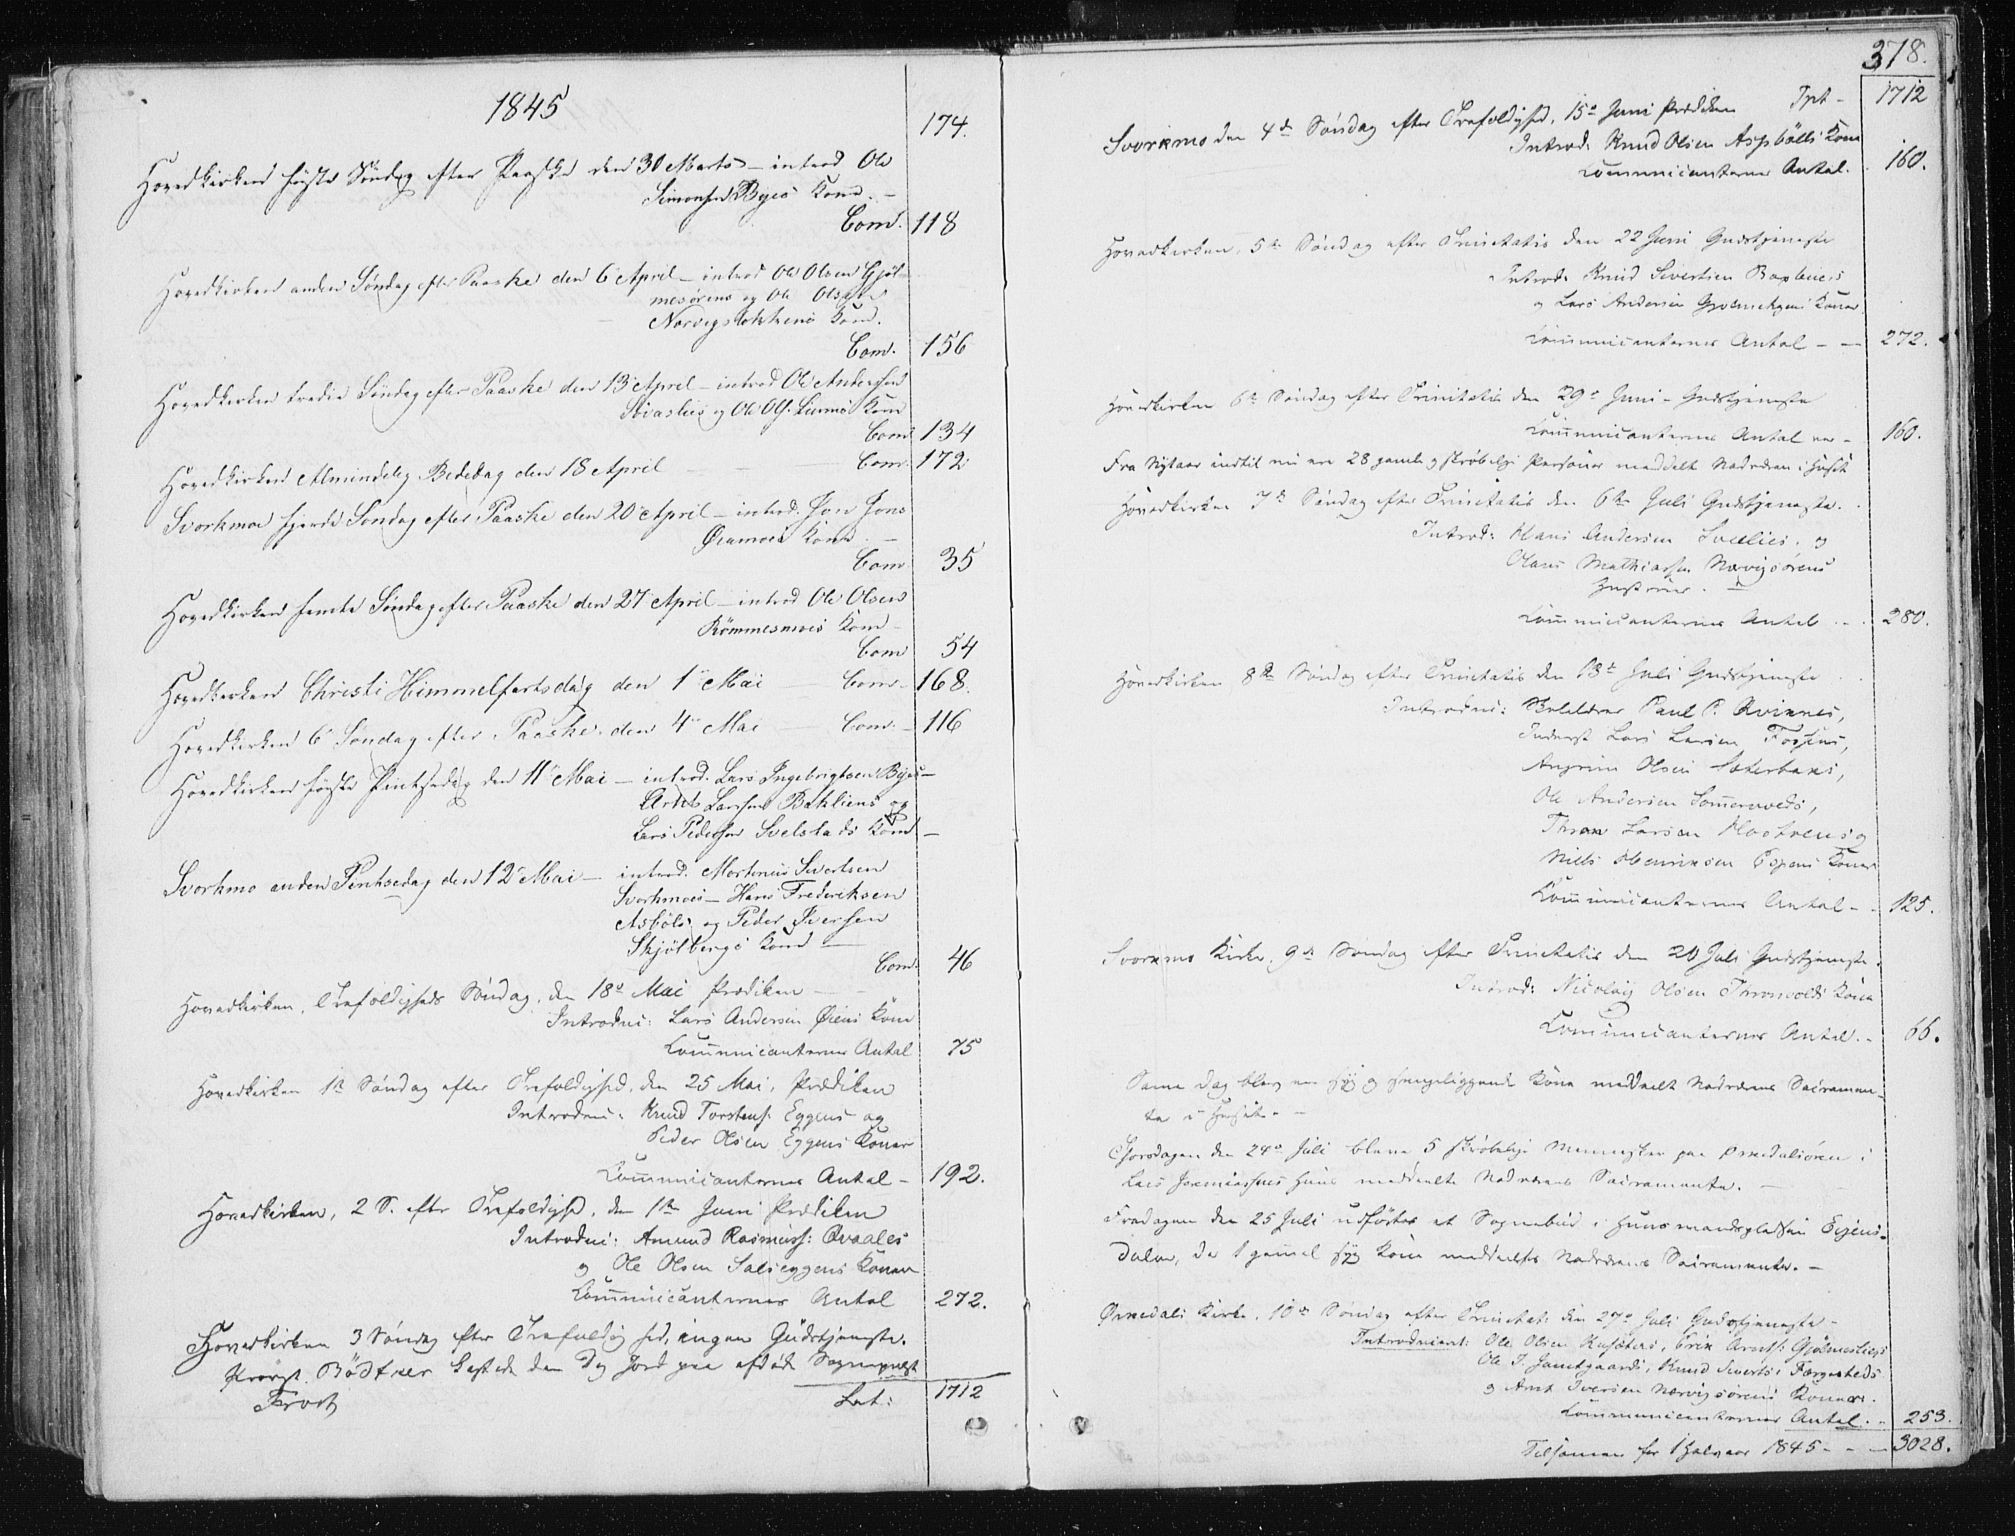 1845
174.
Hovedkirken første Søndag efter Paaske den 30 Marts – introd Ole
Simonsen Byes Kone. –
Com. 118
Hovedkirken anden Søndag efter Paaske den 6 April – introd Ole Olsen Gjøl-
mesørens og Ole Olsen
Norvigslokkens Kone.
Com. 156
Hovedkirken tredie Søndag efter Paaske den 13 April – introd Ole Andersen
og Ole Ols. Kone
Com 134
Hovedkirken Almindelig Bededag den 18 April Com. 172
Svorkmoe fjerde Søndag efter Paaske den 20 April – introd. Jon Jons
Øiamoes Kone. –
Com 35
Hovedkirken femte Søndag efter Paaske den 27 April – introd Ole Olsen
Rømmesmoes Kone –
Com 54
Hovedkirken Christi Himmelfartsdag den 1 Mai – Com – 168.
Hovedkirken 6 Søndag efter Paaske den 4 Mai – Com. – 116
Hovedkirken første Pintsedag den 11 Mai – introd. Lars Ingebrigtsen Byes –
Arnt Larsen Bakliens og
Lars Pedersen Svelstads Kone –
Svorkmo anden Pintsedag den 12 Mai – introd. Mortinus Sivertsen
Svorkmoes – Hans Frederiksen
Asbøls og Peder Iversen
Skjølbergs Kone –
Com. 46
Hovedkirken, Trefoldigheds Søndag, den 18 Mai Prædiken –
Introduc: Lars Andersen Øiens Kone
Communicanternes Antal 75
Hovedkirken 1ste Søndag efter Trefoldighed, den 25 Mai, Prædiken
Introduc: Knud Torstens: Eggens og
Peder Olsen Eggens Koner
Communicanternes Antal – 192.
Hovedkirken, 2 S. efter Trefoldighed, den 1ste Juni Prædiken
Introduc: Amund Rasmuss: Qvaales
og Ole Olsen Solseggens Koner
Communicanternes Antal 272.
Hovedkirken 3 Søndag efter Trefoldighed, ingen Gudstjeneste.
Provst Bödtker kastede den Dag Jord paa afdöde Sogneprest
Frost
Lat: 1712
378.
Tpt – 1712
Svorkmo den 4de Søndag efter Trefoldighed, 15 Juni Prædiken
Introd: Knud Olsen Aspbølls Kone
Communicanternes Antal. 160.
Hovedkirken, 5te Søndag efter Trinitatis den 22 Juni Gudstjeneste
Introd: Knud Sivertsen
og Lars Andersen Koner
Communicanternes Antal – – 272.
Hovedkirken 6te Søndag efter Trinitatis den 29 Juni – Gudstjeneste
Communicanternes Antal var – 160.
Fra Nytaar indtil nu ere 28 gamle og skrøbelige Personer meddelt Nadveren i Huset
Hovedkirken 7de Søndag efter Trinitatis den 6te Juli Gudstjeneste.
Introd: Hans Andersen og
Olaus Mathiassen Norvigsørens
Hustruer. –
Communicanternes Antal . – . 280.
Hovedkirken 8de Søndag efter Trinitatis den 13de Juli Gudstjeneste
Introduc: Skolelærer Paul P. Kvinnes,
Inderst Lars Larsen Fosses,
Angrim Olsen
Ole Andersen Sommervolds,
Thron Larsen og
Niels Henriksen Espens Koner
Communicanternes Antal – – 125.
Svorkmo Kirke, 9de Søndag efter Trinitatis den 20 Juli Gudstjeneste.
Introd: Nicolay Olsen Thronvolds Kone
Communicanternes Antal. – 66.
Samme Dag blev en syg og sengeliggende Kone meddeelt Nadverens Sacramen-
te i Huset. –
Thorsdagen den 24 Juli bleve 5 skrøbelige Mennesker paa Ørkedalsøren i
Lars Jeremiassens Huus meddeelte Nadverens Sacramente. –
Fredagen den 25 Juli udførtes et Sognebud i Huusmandspladsen Evjens-
dalen, da 1 gammel syg Kone meddeeltes Nadverens Sacramente. –
Ørkedals Kirke, 10de Søndag efter Trinitat: den 27 Juli Gudstjeneste –
Introduceret: Ole Olsen Erik Arnts: Gjølmesliens
Ole J. Jamtgaards, Knud Siverts: Forgesteds
og Arnt Iversen Norvigsørens Koner.
Communicanternes Antal. – 253.
Tilsammen for 1 Halvaar 1845 – – – 3028.